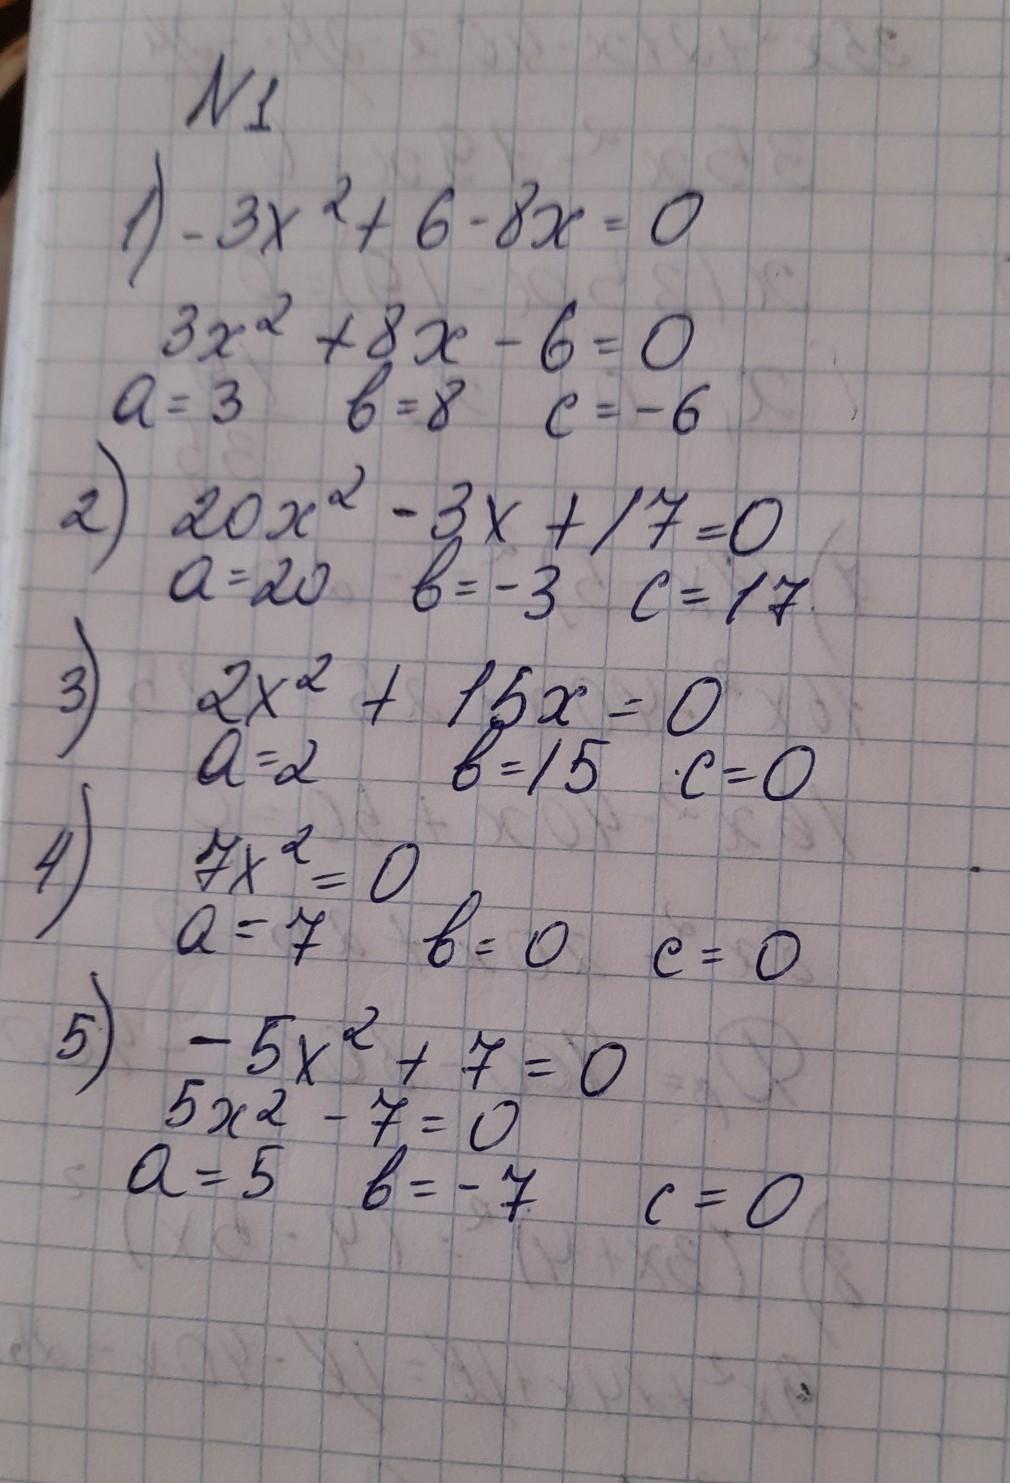 N1
1) -3x² + 6 - 8x = 0
3x² + 8x - 6 = 0
a = 3 в = 8 c = -6
2) 20x² - 3x + 17 = 0
a = 20 в = -3 c = 17
3) 2x² + 15x = 0
a = 2 в = 15 c = 0
4) 7x² = 0
a = 7 в = 0 c = 0
5) -5x² + 7 = 0
5x² - 7 = 0
a = 5 в = -7 c = 0